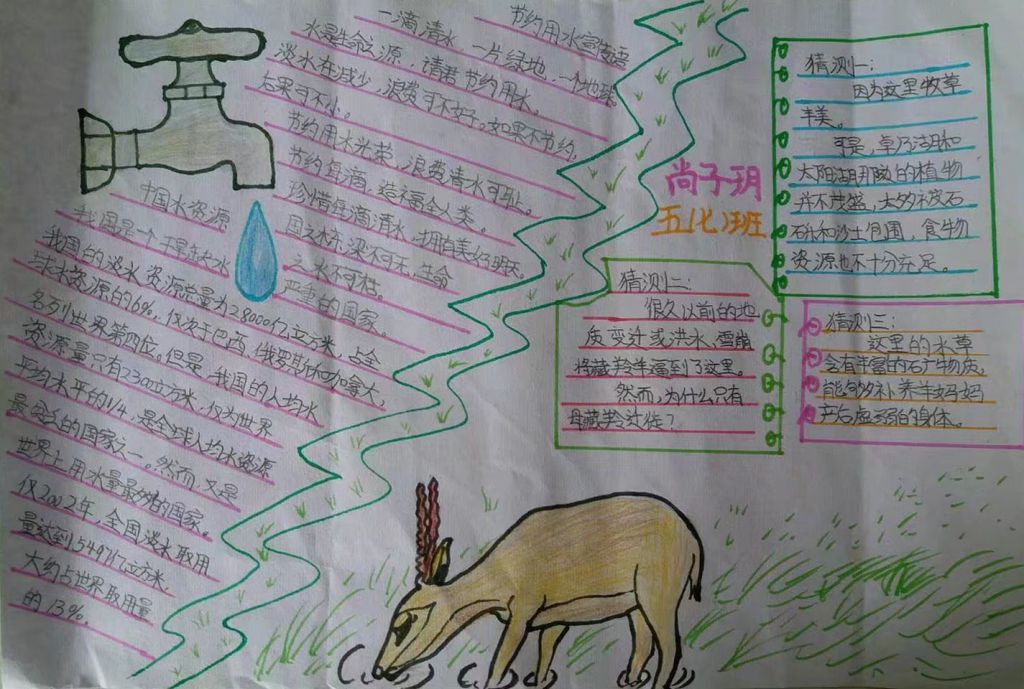 节约用水宣传语
一滴清水，一片绿地，一个地球。
水是生命之源，请君节约用水。
淡水在减少，浪费可不好，如果不节约，
后果可不小。
节约用水光荣，浪费清水可耻。
节约每滴，造福全人类。
珍惜每滴清水，拥有美好明天。
国之栋梁不可无，生命
之水不可枯。
中国水资源
我国是一个干旱缺水
严重的国家。
我国的淡水资源总量为28000亿立方米，占全
球水资源的6%，仅次于巴西、俄罗斯和加拿大，
名列世界第四位。但是，我国的人均水
资源量只有2300立方米，仅为世界
平均水平的1/4，是全球人均水资源
最贫乏的国家之一。然而，又是
世界上用水量最多的国家。
仅2002年，全国淡水取用
量达到5497亿立方米，
大约占世界取用量
的13%。
尚子玥
五(七)班
猜测一：
因为这里牧草
丰美。
可是，卓乃湖和
太阳湖那边的植物
并不茂盛，大多被石
砾和沙土包围，食物
资源也不十分充足。
猜测二：
很久以前的地
质变迁或洪水、雪崩
将藏羚羊逼到了这里。
然而，为什么只有
母藏羚迁徙？
猜测三：
这里的水草
含有丰富的矿物质，
能够补养羊妈妈
产后虚弱的身体。